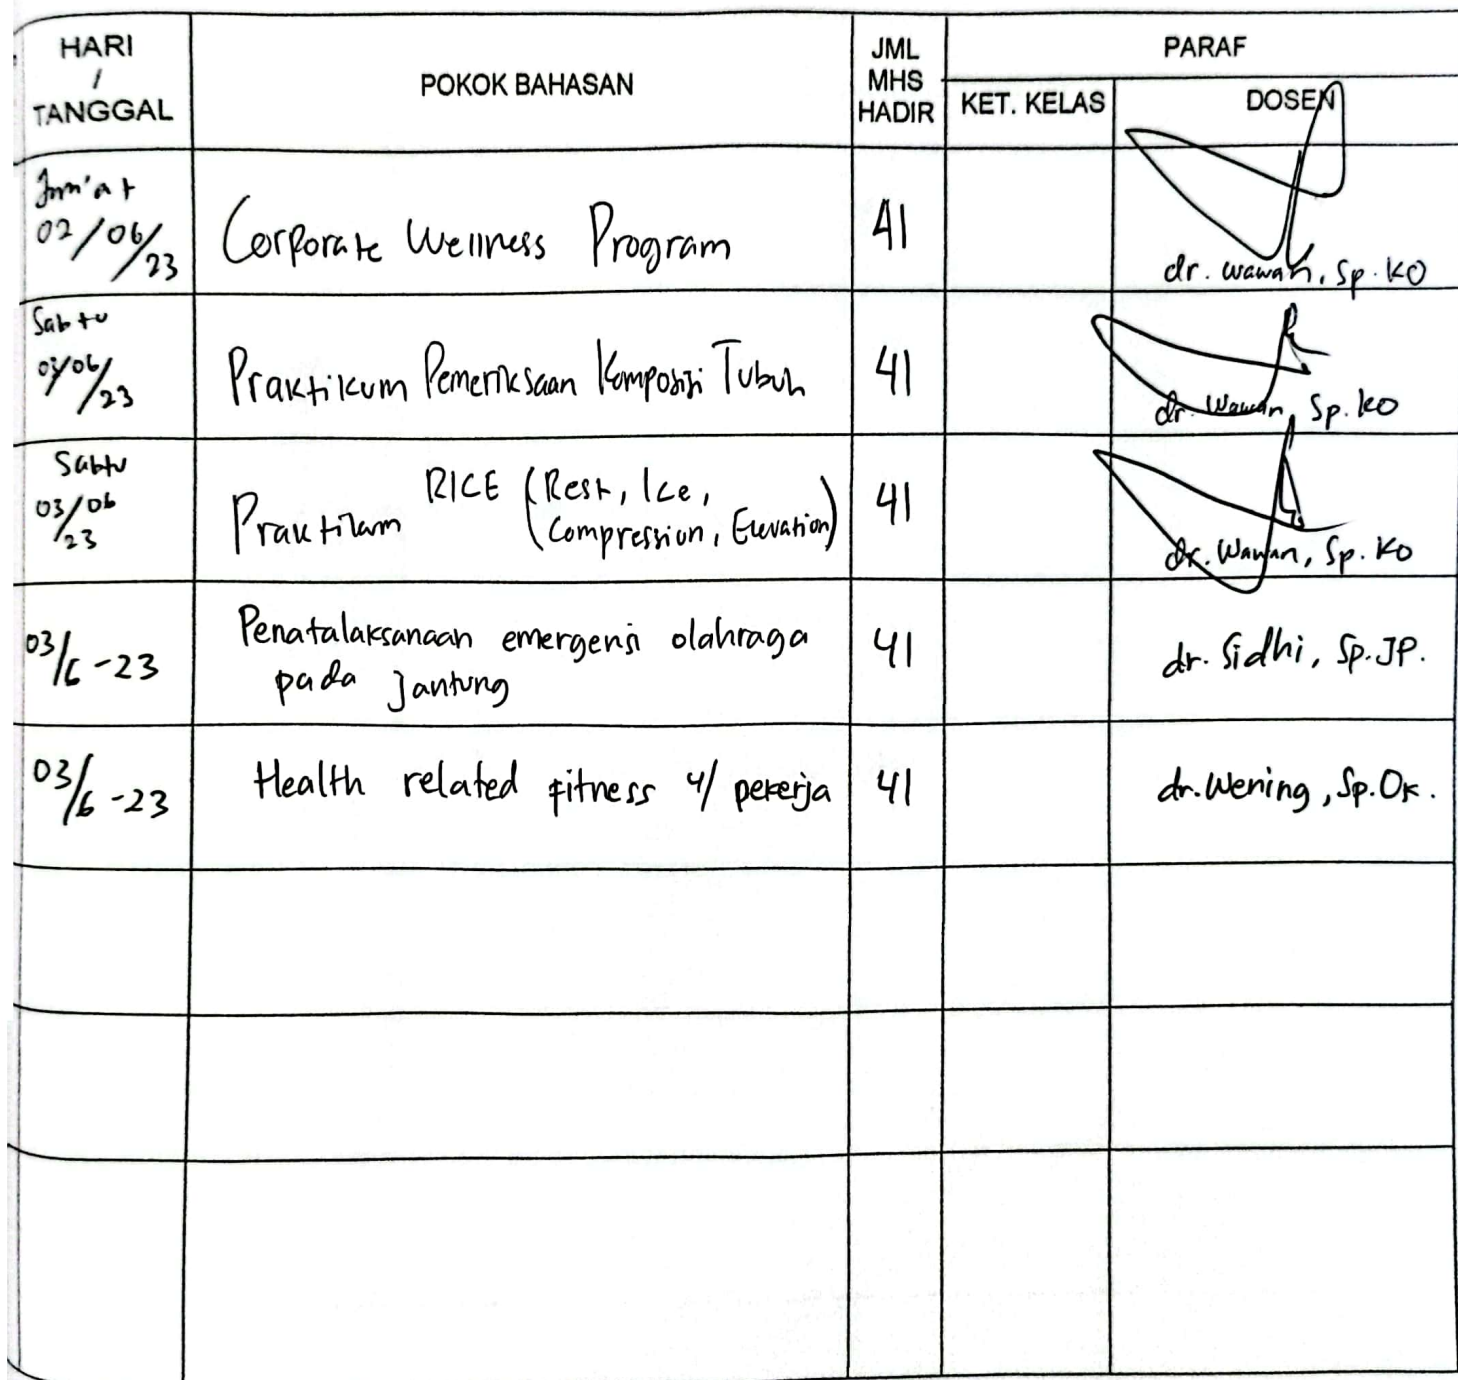 HARI / TANGGAL POKOK BAHASAN JML MHS HADIR PARAF
KET. KELAS DOSEN
Jum'at
02/06/23 Corporate Wellness Program 41 dr. Wawan, Sp. KO
Sabtu
03/06/23 Praktikum Pemeriksaan Komposisi Tubuh 41 dr. Wawan, Sp. KO
Sabtu
03/06/23 Praktikum RICE (Rest, Ice,
Compression, Elevation) 41 dr. Wawan, Sp. KO
03/6-23 Penatalaksanaan emergensi olahraga
pada Jantung 41 dr. Sidhi, Sp.JP.
03/6-23 Health related fitness u/ pekerja 41 dr. Wening, Sp.Ok.